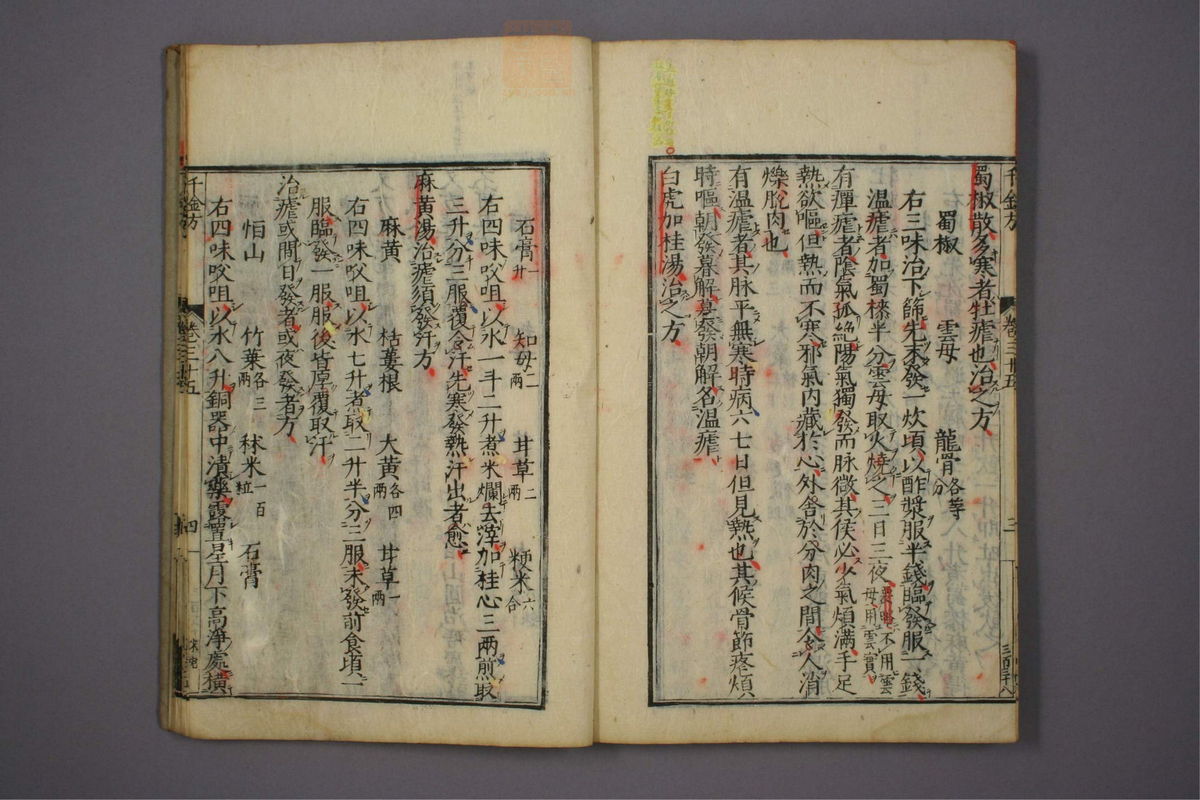 千金方
卷三十五
三
蜀椒散多寒者牡瘧也治之方
蜀椒 雲母 龍骨各等分
右三味治下篩先未發一炊頃以酢漿服半錢臨發服一錢
溫瘧者加蜀椒半分雲母取火燒之三日三夜要略不用雲母用雲實
有癉瘧者陰氣孤絕陽氣獨發而脉微其候必少氣煩滿手足
熱欲嘔但熱而不寒邪氣內藏於心外舍於分肉之間令人消
爍脫肉也
有溫瘧者其脉平無寒時病六七日但見熱也其候骨節疼煩
時嘔朝發暮解暮發朝解名溫瘧
白虎加桂湯治之方
石膏一斤 知母二兩 甘草二兩 粳米六合
右四味㕮咀以水一斗二升煮米爛去滓加桂心三兩煎取
三升分三服覆令汗先寒發熱汗出者愈
麻黃湯治瘧須發汗方
麻黃 栝蔞根 大黃各四兩 甘草一兩
右四味㕮咀以水七升煮取二升半分三服未發前食頃一
服臨發一服服後皆厚覆取汗
治瘧或間日發者或夜發者方
恒山 竹葉各三兩 秫米一百粒 石膏
右四味㕮咀以水八升銅器中漬藥露置星月下高淨處橫
千金方
卷三十五
四